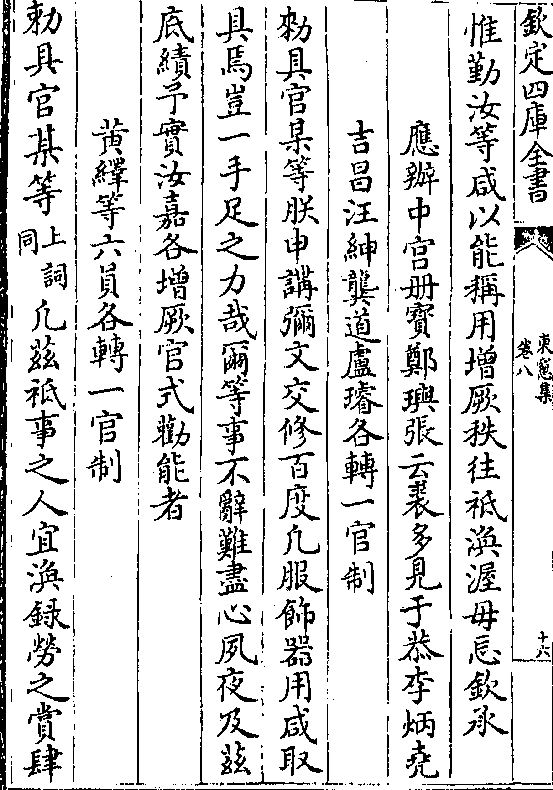 欽定四庫全書
東窓集
卷八
十六
惟勤汝等咸以能稱用增厥秩往祗渙渥毋忘欽承
應辦中宮册寳鄭璵張云裘多見于恭李炳堯
吉昌汪紳龔道盧璿各轉一官制
勑具官某等朕申講彌文交修百度凡服飾器用咸取
具焉豈一手足之力哉爾等事不辭難盡心夙夜及兹
底績予實汝嘉各增厥官式勸能者
黄繹等六員各轉一官制
勑具官某等上詞同凡兹祗事之人宜渙録勞之賞肆